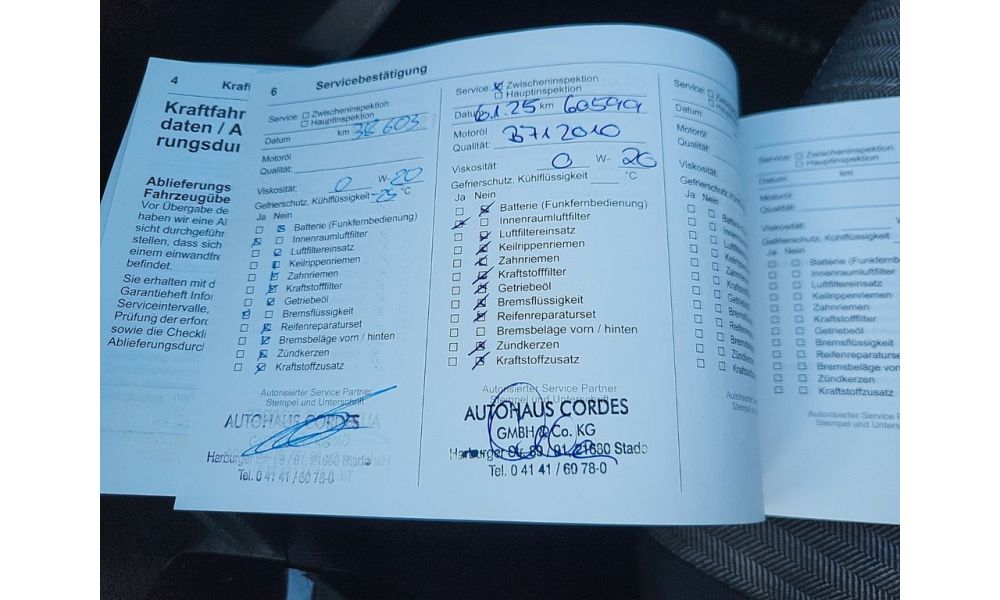 4
Kraft
Kraftfahr
daten / A
rungsdur
Ablieferungs
Fahrzeugübe
Vor Übergabe de
haben wir eine Al
sicht durchgeführ
stellen, dass sich
einem einwandfre
befindet.
Sie erhalten mit d
Garantieheft Infor
Serviceintervalle,
Prüfung der erford
sowie die Checkli
Ablieferungsdurch
6 Servicebestätigung
Service: Zwischeninspektion
Hauptinspektion
Datum km 36 603
Motoröl
Qualität:
Viskosität: 0 W- 20
Gefrierschutz, Kühlflüssigkeit -25 °C
Ja Nein
Batterie (Funkfernbedienung)
Innenraumluftfilter
Luftfiltereinsatz
Keilrippenriemen
Zahnriemen
Kraftstofffilter
Getriebeöl
Bremsflüssigkeit
Reifenreparaturset
Bremsbeläge vorn / hinten
Zündkerzen
Kraftstoffzusatz
Autorisierter Service Partner
Stempel und Unterschrift
AUTOHAUS CORDES
Tel. 0 41 41 / 60 78-0
Service: Zwischeninspektion
Hauptinspektion
Datum 6.1.25 km 60599
Motoröl
Qualität: B71 2010
Viskosität: 0 W- 20
Gefrierschutz, Kühlflüssigkeit °C
Ja Nein
Batterie (Funkfernbedienung)
Innenraumluftfilter
Luftfiltereinsatz
Keilrippenriemen
Zahnriemen
Kraftstofffilter
Getriebeöl
Bremsflüssigkeit
Reifenreparaturset
Bremsbeläge vorn / hinten
Zündkerzen
Kraftstoffzusatz
Autorisierter Service Partner
Stempel und Unterschrift
AUTOHAUS CORDES
GMBH & Co. KG
Harburger Str. 89 / 91, 21680 Stade
Tel. 0 41 41 / 60 78-0
Service:
Datum
Motoröl
Qualität:
Viskosität:
Gefrierschutz,
Ja Nein
Service: Zwischeninspektion
Hauptinspektion
Datum km
Motoröl
Qualität:
Viskosität:
Gefrierschutz, Kühlflüssigkeit
Ja Nein
Batterie (Funkfernb
Innenraumluftfilter
Luftfiltereinsatz
Keilrippenriemen
Zahnriemen
Kraftstofffilter
Getriebeöl
Bremsflüssigkeit
Reifenreparaturse
Bremsbeläge von
Zündkerzen
Kraftstoffzusatz
Autorisierter Service P
Stempel und Unters